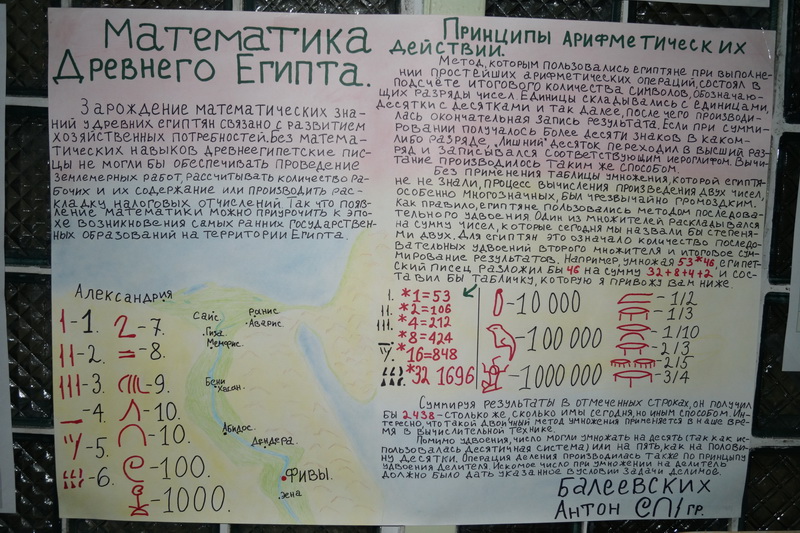 Математика
Древнего Египта.
Зарождение математических зна-
ний у древних египтян связано с развитием
хозяйственных потребностей. Без матема-
тических навыков древнеегипетские пис-
цы не могли бы обеспечивать проведение
землемерных работ, рассчитывать количество ра-
бочих и их содержание или производить рас-
кладку налоговых отчислений. Так что появ-
ление математики можно приурочить к эпо-
хе возникновения самых ранних государствен-
ных образований на территории Египта.
Александрия
Саис
Гиза
Мемфис
Аварис.
Бени
Хасан.
Абидос.
Дендера.
Фивы.
-1.
-2.
-3.
-4.
-5.
-6.
-7.
-8.
-9.
-10.
-10.
-100.
-1000.
Принципы арифметических
действий.
Метод, которым пользовались египтяне при выполне-
нии простейших арифметических операций, состоял в
подсчёте итогового количества символов, обозначаю-
щих разряды чисел. Единицы складывались с единицами,
десятки с десятками и так далее, после чего производи-
лась окончательная запись результата. Если при сумми-
ровании получалось более десяти знаков в каком-
либо разряде, „лишний" десяток переходил в высший раз-
ряд и записывался соответствующим иероглифом. Вычи-
тание производилось таким же способом.
Без применения таблицы умножения, которой египтя-
не не знали, процесс вычисления произведения двух чисел,
особенно многозначных, был чрезвычайно громоздким.
Как правило, египтяне пользовались методом последова-
тельного удвоения. Один из множителей раскладывался
на сумму чисел, которые сегодня мы назвали бы степеня-
ми двух. Для египтян это означало количество последо-
вательных удвоений второго множителя и итоговое сум-
мирование результатов. Например, умножая 53*46, египет-
ский писец разложил бы 46 на сумму 32+8+4+2 и сос-
тавил бы табличку, которую я привожу вам ниже.
*1=53
*2=106
*4=212
*8=424
*16=848
*32 1696
-10 000
-100 000
-1000000
-1/2
-1/3
-1/10
-2/3
-2/5
-3/4
Суммируя результаты в отмеченных строках, он получил
бы 2438-столько же, сколько и мы сегодня, но иным способом. Ин-
тересно, что такой двоичный метод умножения применяется в наше вре-
мя в вычислительной технике.
Помимо удвоения, число могли умножать на десять (так как ис-
пользовалась десятичная система) или на пять, как на полови-
ну десятки. Операция деления производилась также по принципу
удвоения делителя. Искомое число при умножении на делитель
должно было дать указанное в условии задачи делимов.
Балеевских
Антон СП1гр.